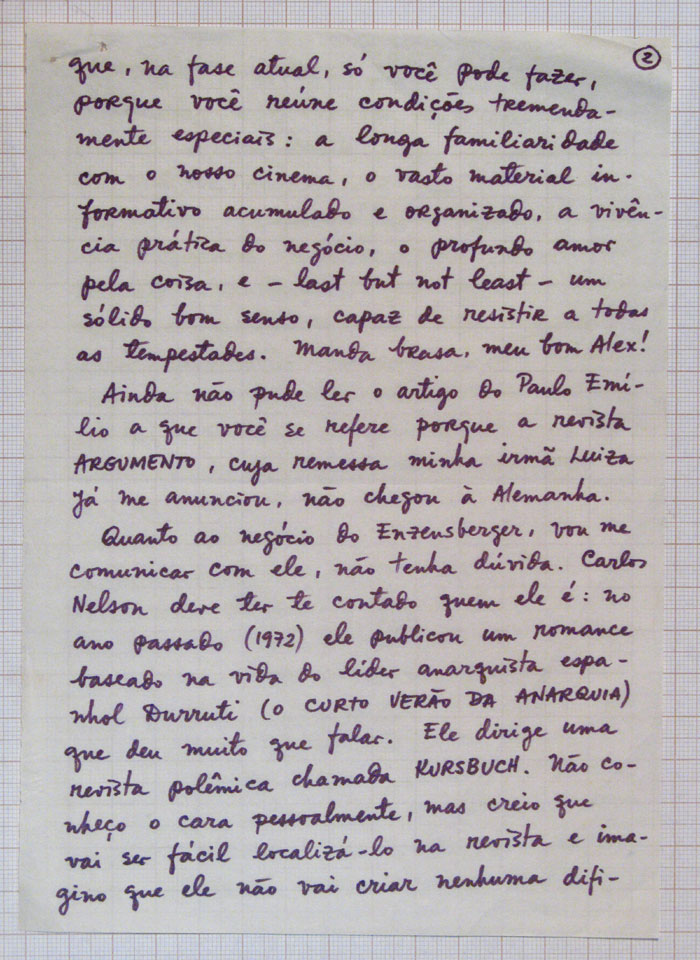 2
que, na fase atual, só você pode fazer,
porque você reúne condições tremenda-
mente especiais: a longa familiaridade
com o nosso cinema, o vasto material in-
formativo acumulado e organizado, a vivên-
cia prática do negócio, o profundo amor
pela coisa, e - last but not least - um
sólido bom senso, capaz de resistir a todas
as tempestades. Manda brasa, meu bom Alex!
Ainda não pude ler o artigo do Paulo Emí-
lio a que você se refere porque a revista
ARGUMENTO, cuja remessa minha irmã Luiza
já me anunciou, não chegou à Alemanha.
Quanto ao negócio do Enzensberger, vou me
comunicar com ele, não tenha dúvida. Carlos
Nelson deve ter te contado quem ele é: no
ano passado (1972) ele publicou um romance
baseado na vida do líder anarquista espa-
nhol Durruti (O CURTO VERÃO DA ANARQUIA)
que deu muito que falar. Ele dirige uma
revista polêmica chamada KURSBUCH. Não co-
nheço o cara pessoalmente, mas creio que
vai ser fácil localizá-lo na revista e ima-
gino que ele não vai criar nenhuma difi-